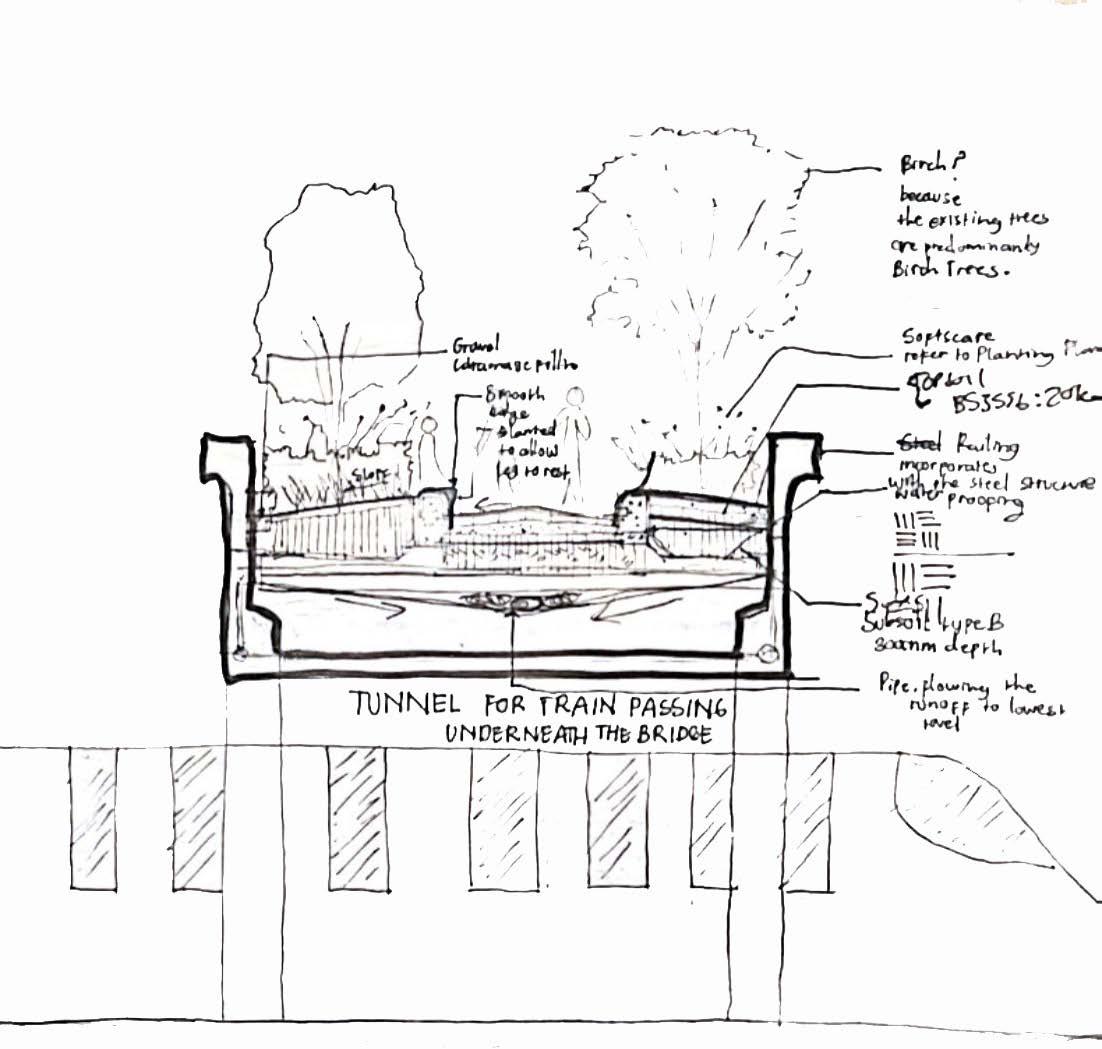 Birch?
because
the existing trees
are predominantly
Birch Trees.
Softscape
refer to Planting
Topsoil
Gravel
Smooth
edge
slanted
to allow
leg to rest
Slope
Steel Railing
incorporates
with the steel structure
water proofing
Subsoil type B
300mm depth
Pipe. flowing the
runoff to lowest
level
TUNNEL FOR TRAIN PASSING
UNDERNEATH THE BRIDGE